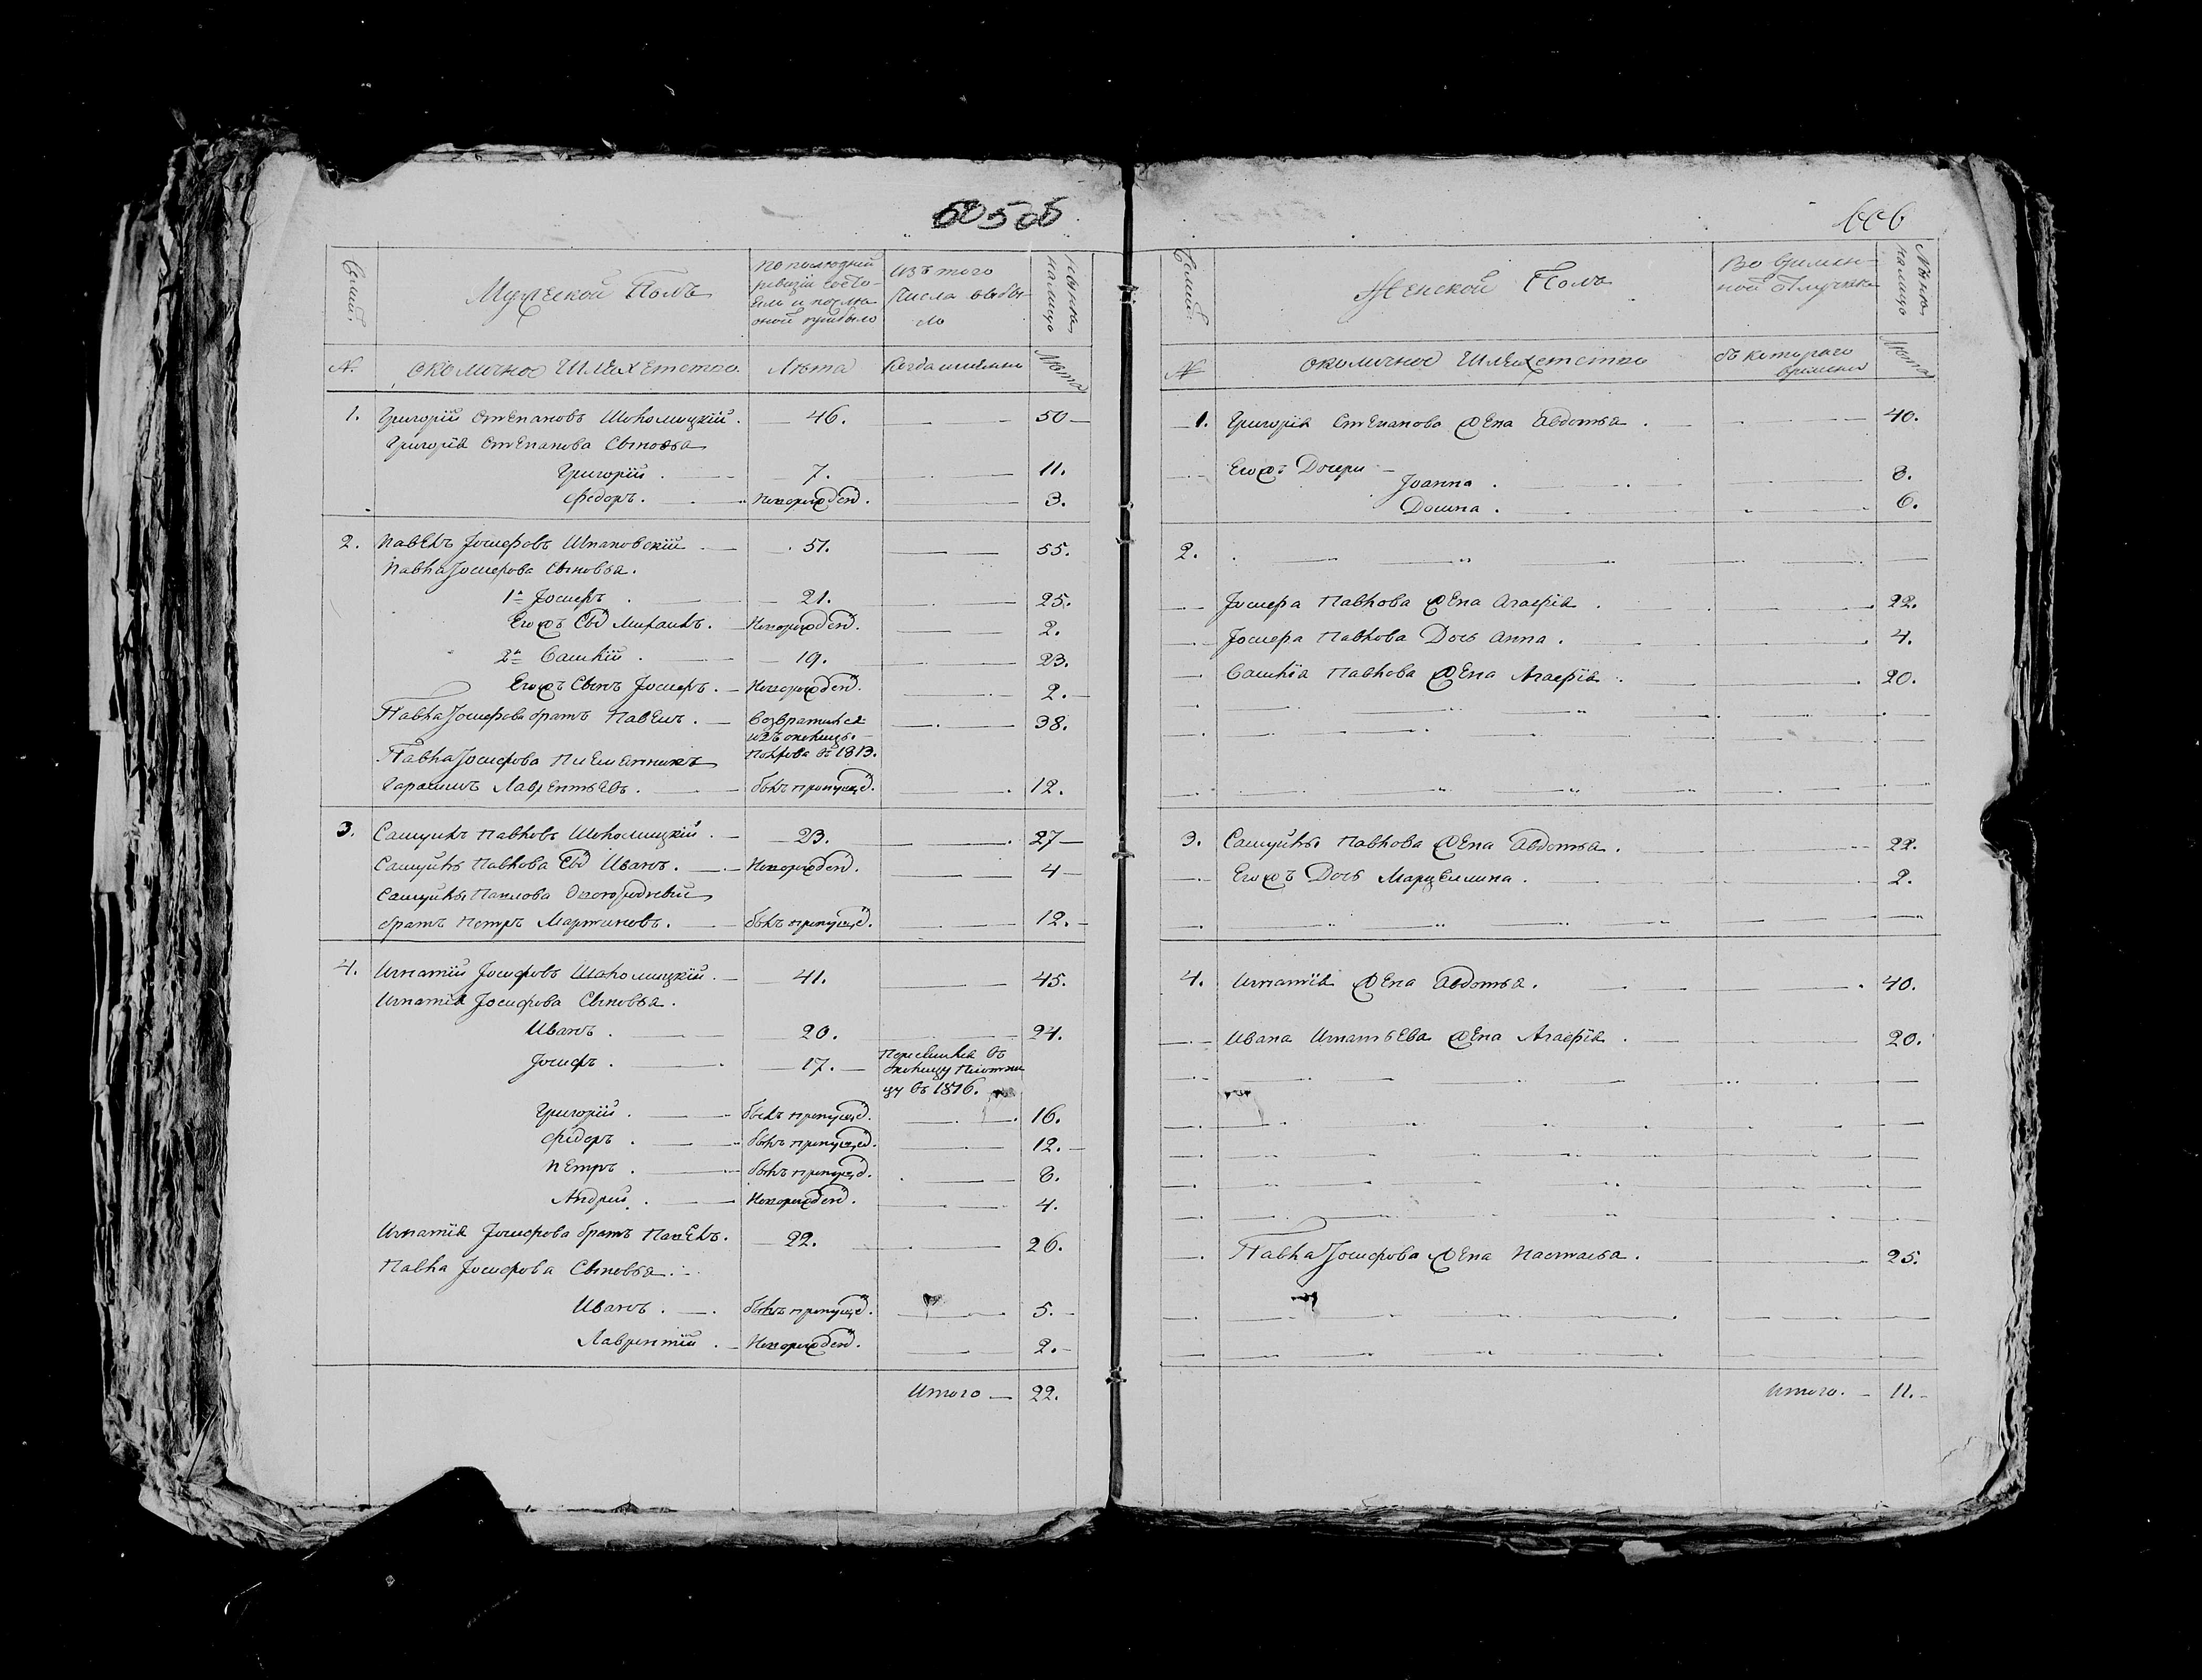 Семьи.
Мужеской Полъ
По последней
ревизіи состо-
яли и после
оной прибыло
Изъ того
числа выбы-
ло
Ныне
на лицо
№.
околичное Шляхетство.
Лета
Когда именно
Лета
1. Григорій Степановъ Шоломицкій. 46. 50
Григорія Степанова Сыновья
Григорій. 7. 11.
Федоръ. Новорожден. 3.
2. Павелъ Іосифовъ Шпаковскій 51. 55.
Павла Іосифова Сыновья.
1й Іосифъ 21. 25.
Егожъ Сын Михаилъ. Новорожден. 2.
2й Василій. 19. 23.
Егожъ Сынъ Іосифъ. Новорожден. 2.
Павла Іосифова братъ Павелъ. Возвратился 38.
изъ околицы
Павла Іосифова племянникъ въ 1813.
Герасимъ Лаврентьевъ. былъ пропущ. 12.
3. Самуилъ Павловъ Шоломицкій 23. 27
Самуила Павлова Сын Иванъ. Новорожден. 4
Самуила Павлова двоюродный
братъ Петръ Мартиновъ. былъ пропущ. 12.
4. Игнатій Іосифовъ Шоломицкій. 41. 45.
Игнатія Іосифова Сыновья.
Иванъ. 20. 24.
Іосифъ. 17. Переселился въ
околицу
въ 1816.
Григорій. былъ пропущ. 16.
Федоръ. былъ пропущ. 12.
Петръ. былъ пропущ. 8.
Андрей. Новорожден. 4.
Игнатія Іосифова братъ Павелъ. 22. 26.
Павла Іосифова Сыновья.
Иванъ. былъ пропущ. 5.
Лаврентій. Новорожден. 2.
Итого 22.
Семьи.
Женской Полъ
Во времен-
ной отлучке
Ныне
на лицо
№
околичное Шляхетство
съ котораго
времени
Лета
1. Григорія Степанова жена Авдотья. 40.
Егожъ Дочери
Іоанна. 8.
Домна. 6.
2.
Іосифа Павлова жена Агафія. 22.
Іосифа Павлова Дочь Анна. 4.
Василія Павлова жена Агафія. 20.
3. Самуила Павлова жена Авдотья. 22.
Егожъ Дочь Марцелина. 2.
4. Игнатія жена Авдотья. 40.
Ивана Игнатьева жена Агафія. 20.
Павла Іосифова жена Настасья. 25.
Итого. 11.